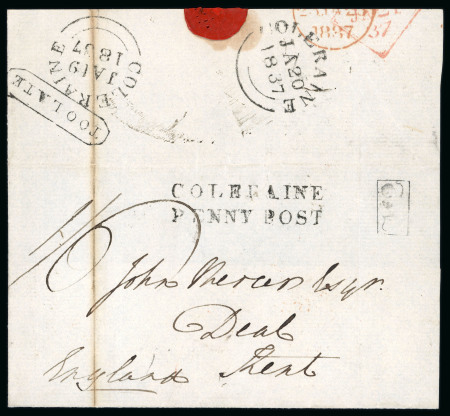 COLERAINE
JA19
1837
TOO LATE
COLERAINE
JA20
1837
1837
37
COLERAINE
PENNY POST
John Mercer Esqr.
Deal
England Kent